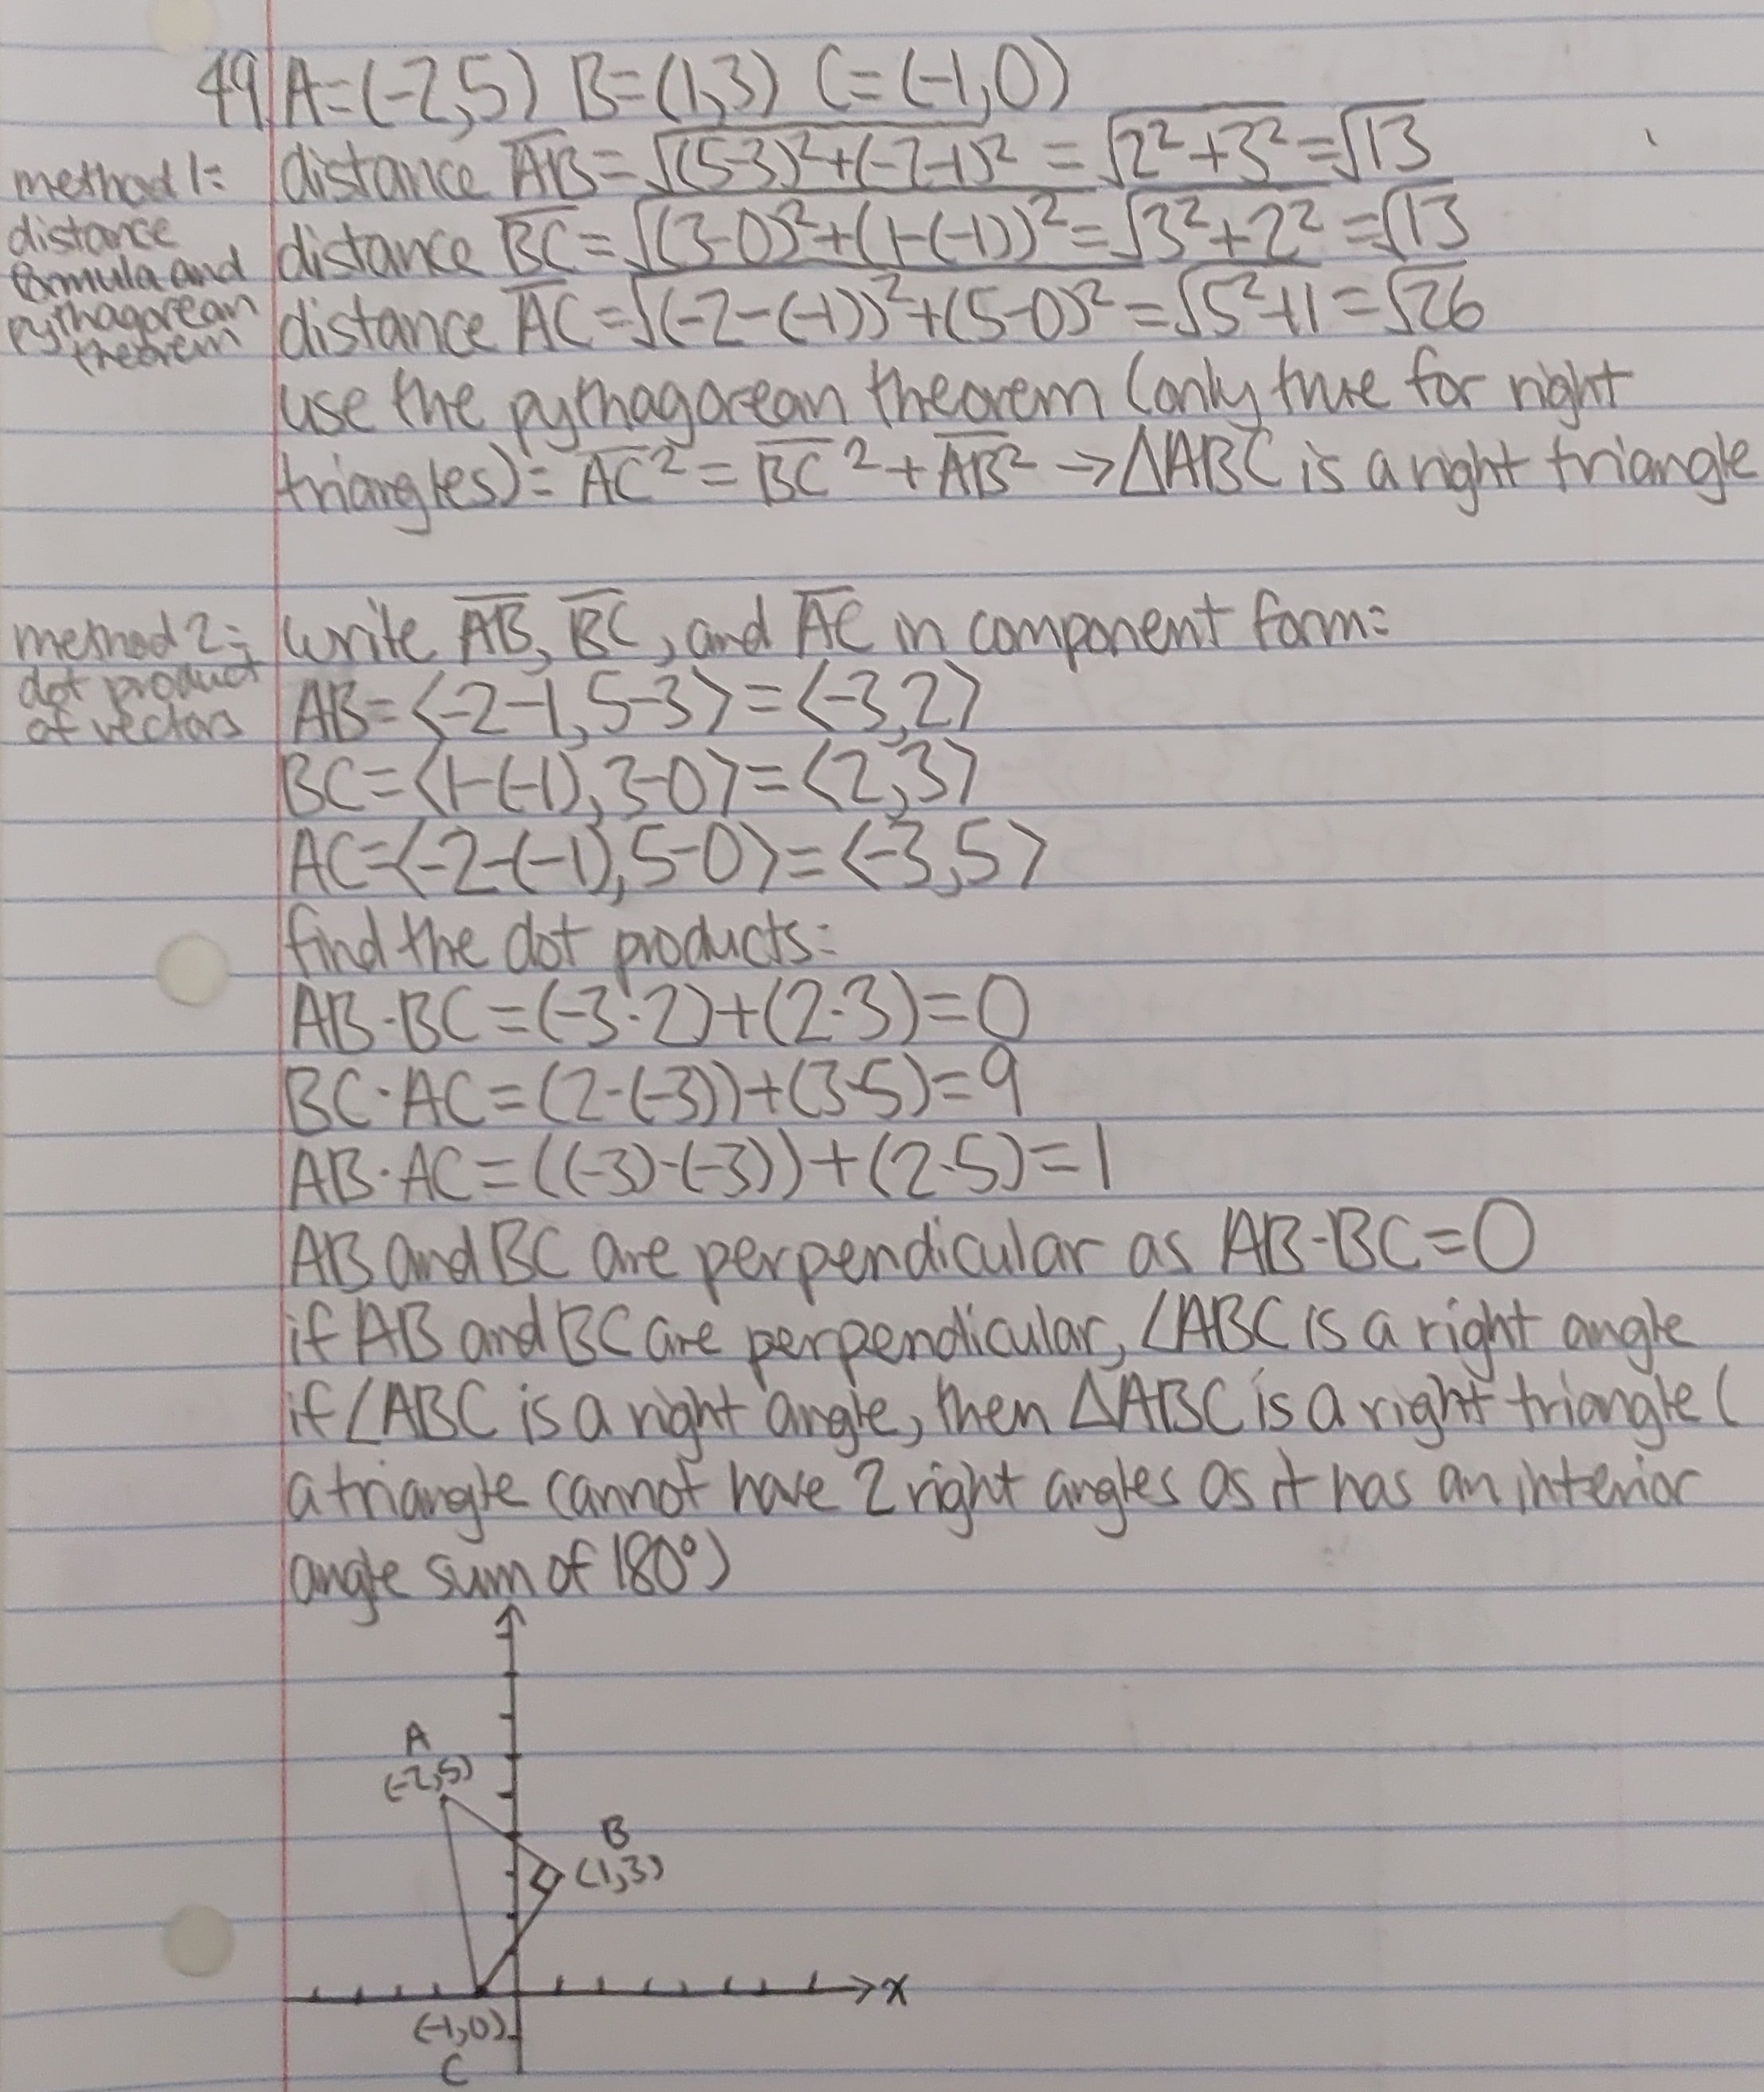 49. A=(-2,5) B=(1,3) C=(-1,0)
method 1:
distance
formula and
pythagorean
theorem
distance A̅B̅=√((5-3)²+(-2-1)²) = √(2²+3²)=√13
distance B̅C̅=√((3-0)²+(1-(-1))²)=√(3²+2²)=√13
distance A̅C̅=√((-2-(-1))²+(5-0)²)=√(5²+1)=√26
use the pythagorean theorem (only true for right
triangles): A̅C̅²=B̅C̅²+A̅B̅² → △ABC is a right triangle
method 2:
dot product
of vectors
write A̅B̅, B̅C̅, and A̅C̅ in component form:
AB=⟨-2-1,5-3⟩=⟨-3,2⟩
BC=⟨1-(-1),3-0⟩=⟨2,3⟩
AC=⟨-2-(-1),5-0⟩=⟨-3,5⟩
find the dot products:
AB·BC=(-3·2)+(2·3)=0
BC·AC=(2·(-3))+(3·5)=9
AB·AC=((-3)·(-3))+(2·5)=1
AB and BC are perpendicular as AB·BC=0
if AB and BC are perpendicular, ∠ABC is a right angle
if ∠ABC is a right angle, then △ABC is a right triangle (
a triangle cannot have 2 right angles as it has an interior
angle sum of 180°)
A
(-2,5)
B
(1,3)
x
(-1,0)
C